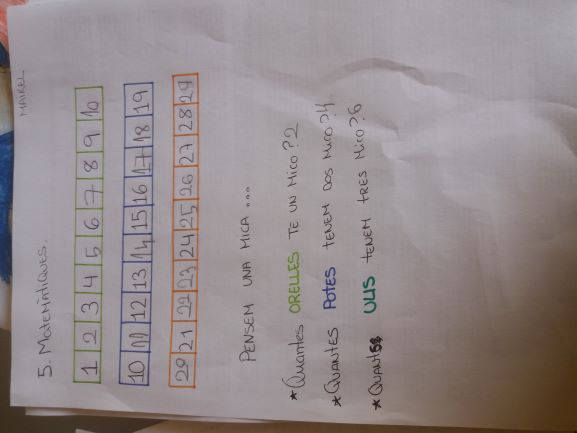 MAIREL
5. MATEMÀTIQUES.
1 2 3 4 5 6 7 8 9 10
10 11 12 13 14 15 16 17 18 19
20 21 22 23 24 25 26 27 28 29
PENSEM UNA MICA ...
* Quantes ORELLES TÉ UN MICO? 2
* QUANTES POTES TENEM DOS MICO? 4
* QUANTS ULLS TENEM TRES MICO? 6